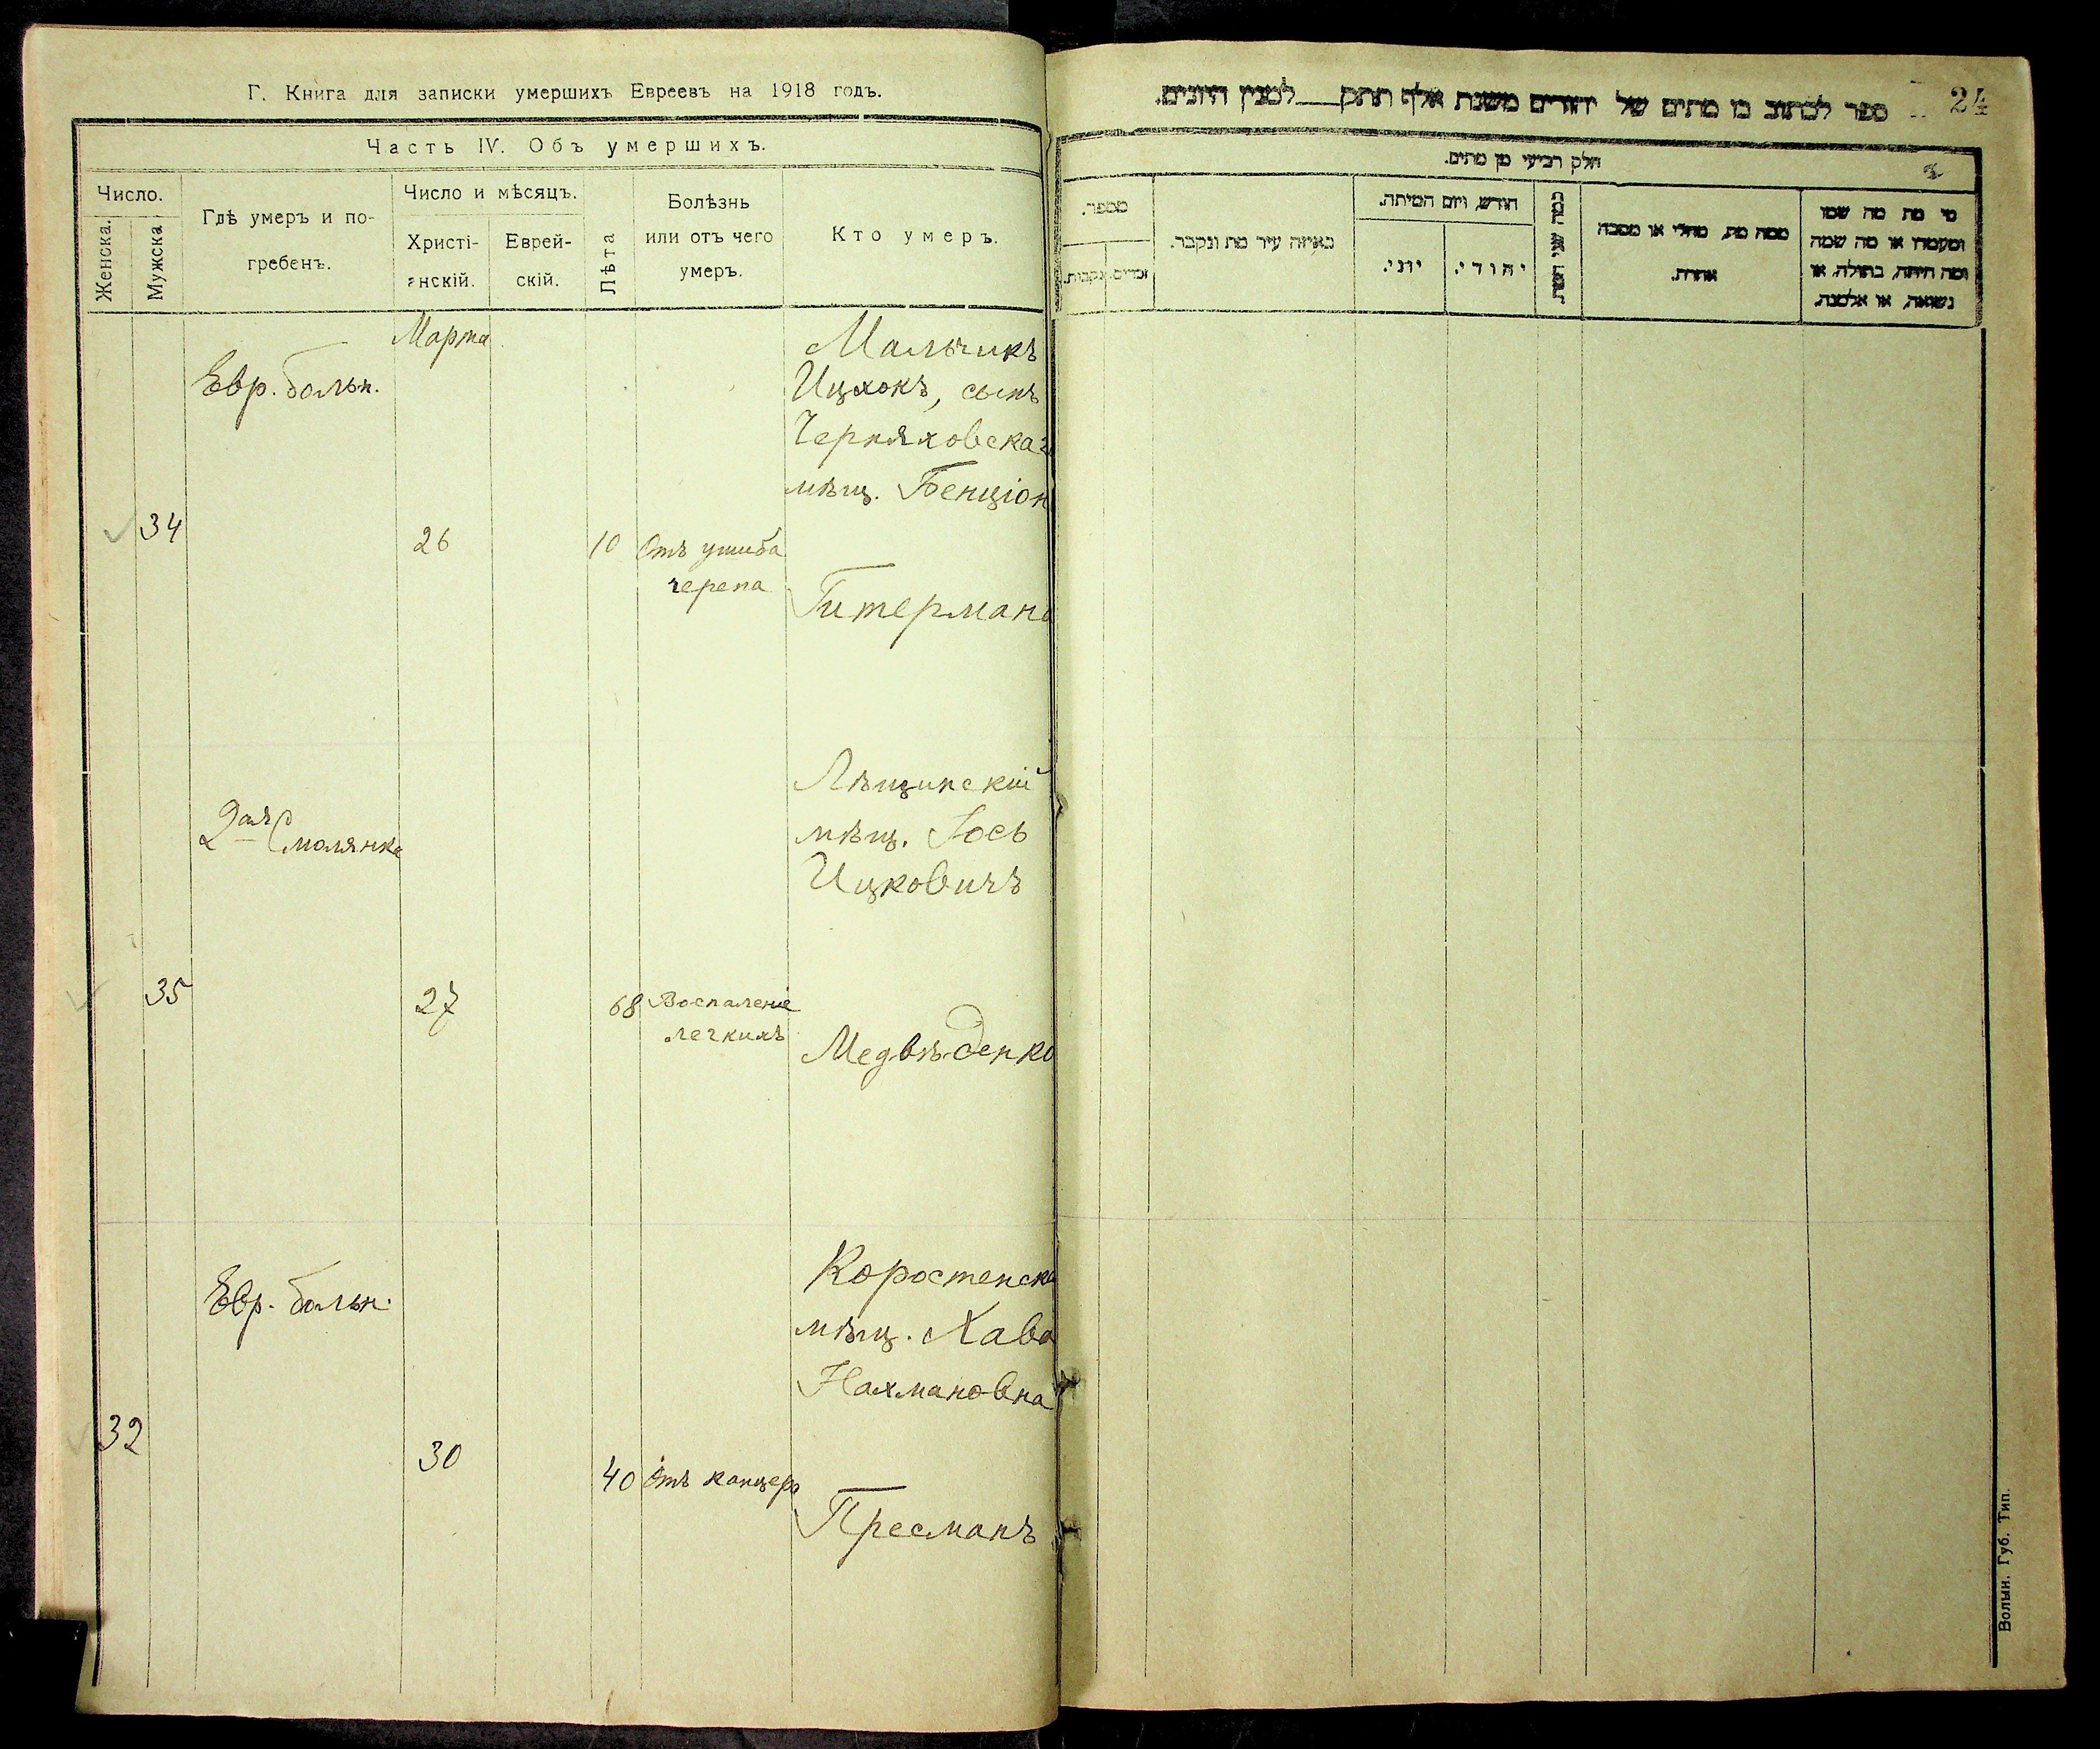 Г. Книга для записки умершихъ Евреевъ на 1918 годъ.
Часть IV. Объ умершихъ.
Число.
Женска.
Мужска
Гдѣ умеръ и по-
гребенъ.
Число и мѣсяцъ.
Христі-
анскій.
Еврей-
скій.
Лѣта
Болѣзнь
или отъ чего
умеръ.
Кто умеръ.
Марта
Евр. больн.
34
26
10
Отъ ушиба
черепа
Мальчикъ
Ицхокъ, сынъ
Черняховскаг
мѣщ. Бенціон
Гитермана
2ая Смолянка
35
27
68
Воспаленіе
легкихъ
Лѣщинскій
мѣщ. Іось
Ицковичъ
Медвѣденко
Евр. больн.
32
30
40
Отъ канцера
Коростенска
мѣщ. Хава
Нахмановна
Пресманъ
ספר לכתוב בו מתים של יהודים משנת אלף תתק למנין היונים.
24
חלק רביעי מן מתים.
מספר.
זכרים.
נקבות.
באיזה עיר מת ונקבר.
חודש, ויום המיתה.
יוני.
יהודי.
כמה שני חייו.
ממה מת, מחלי או מסבה
אחרת.
מי מת מה שמו
ומעמדו או מה שמה
ומה היתה, בתולה, או
נשואה, או אלמנה.
Волын. Губ. Тип.